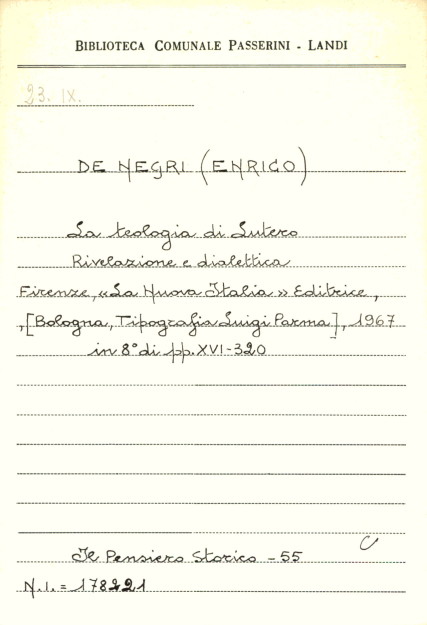 BIBLIOTECA COMUNALE PASSERINI - LANDI
23. IX.
DE NEGRI (ENRICO)
La teologia di Lutero
Rivelazione e dialettica
Firenze, «La Nuova Italia» Editrice,
,[Bologna, Tipografia Luigi Parma], 1967
in 8° di pp. XVI-320
C
Il Pensiero Storico - 55
N.I. = 178221